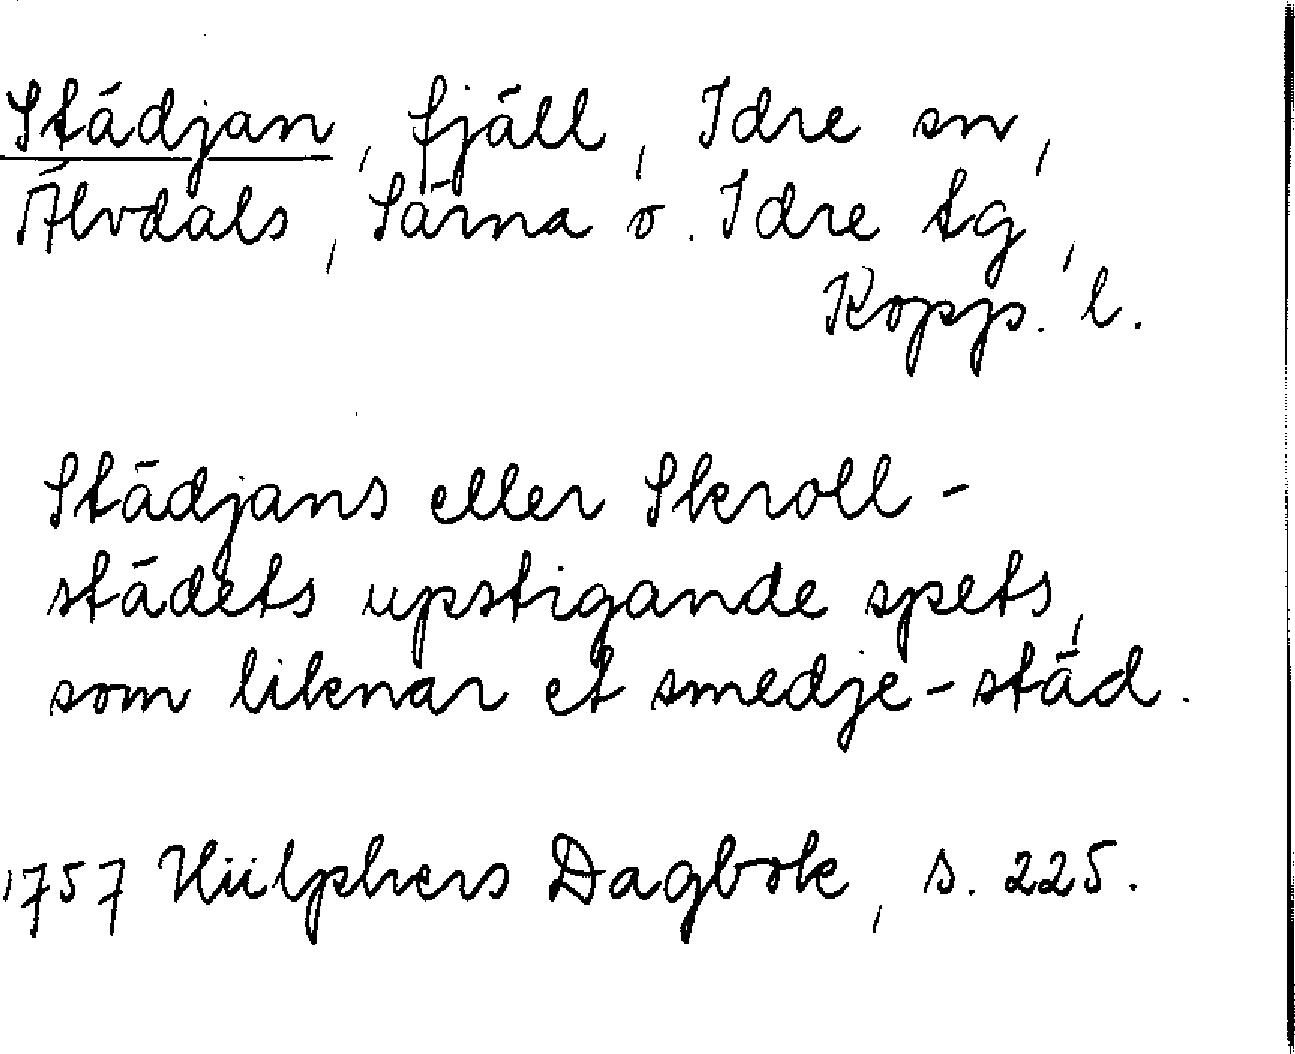 Städjan, fjäll, Idre sn,
Älvdals, Särna o. Idre tg,
Kopp. l.
Städjans eller Skroll-
städets upstigande spets,
som liknar et smedje-städ.
1757 Hülphers Dagbok, s. 225.